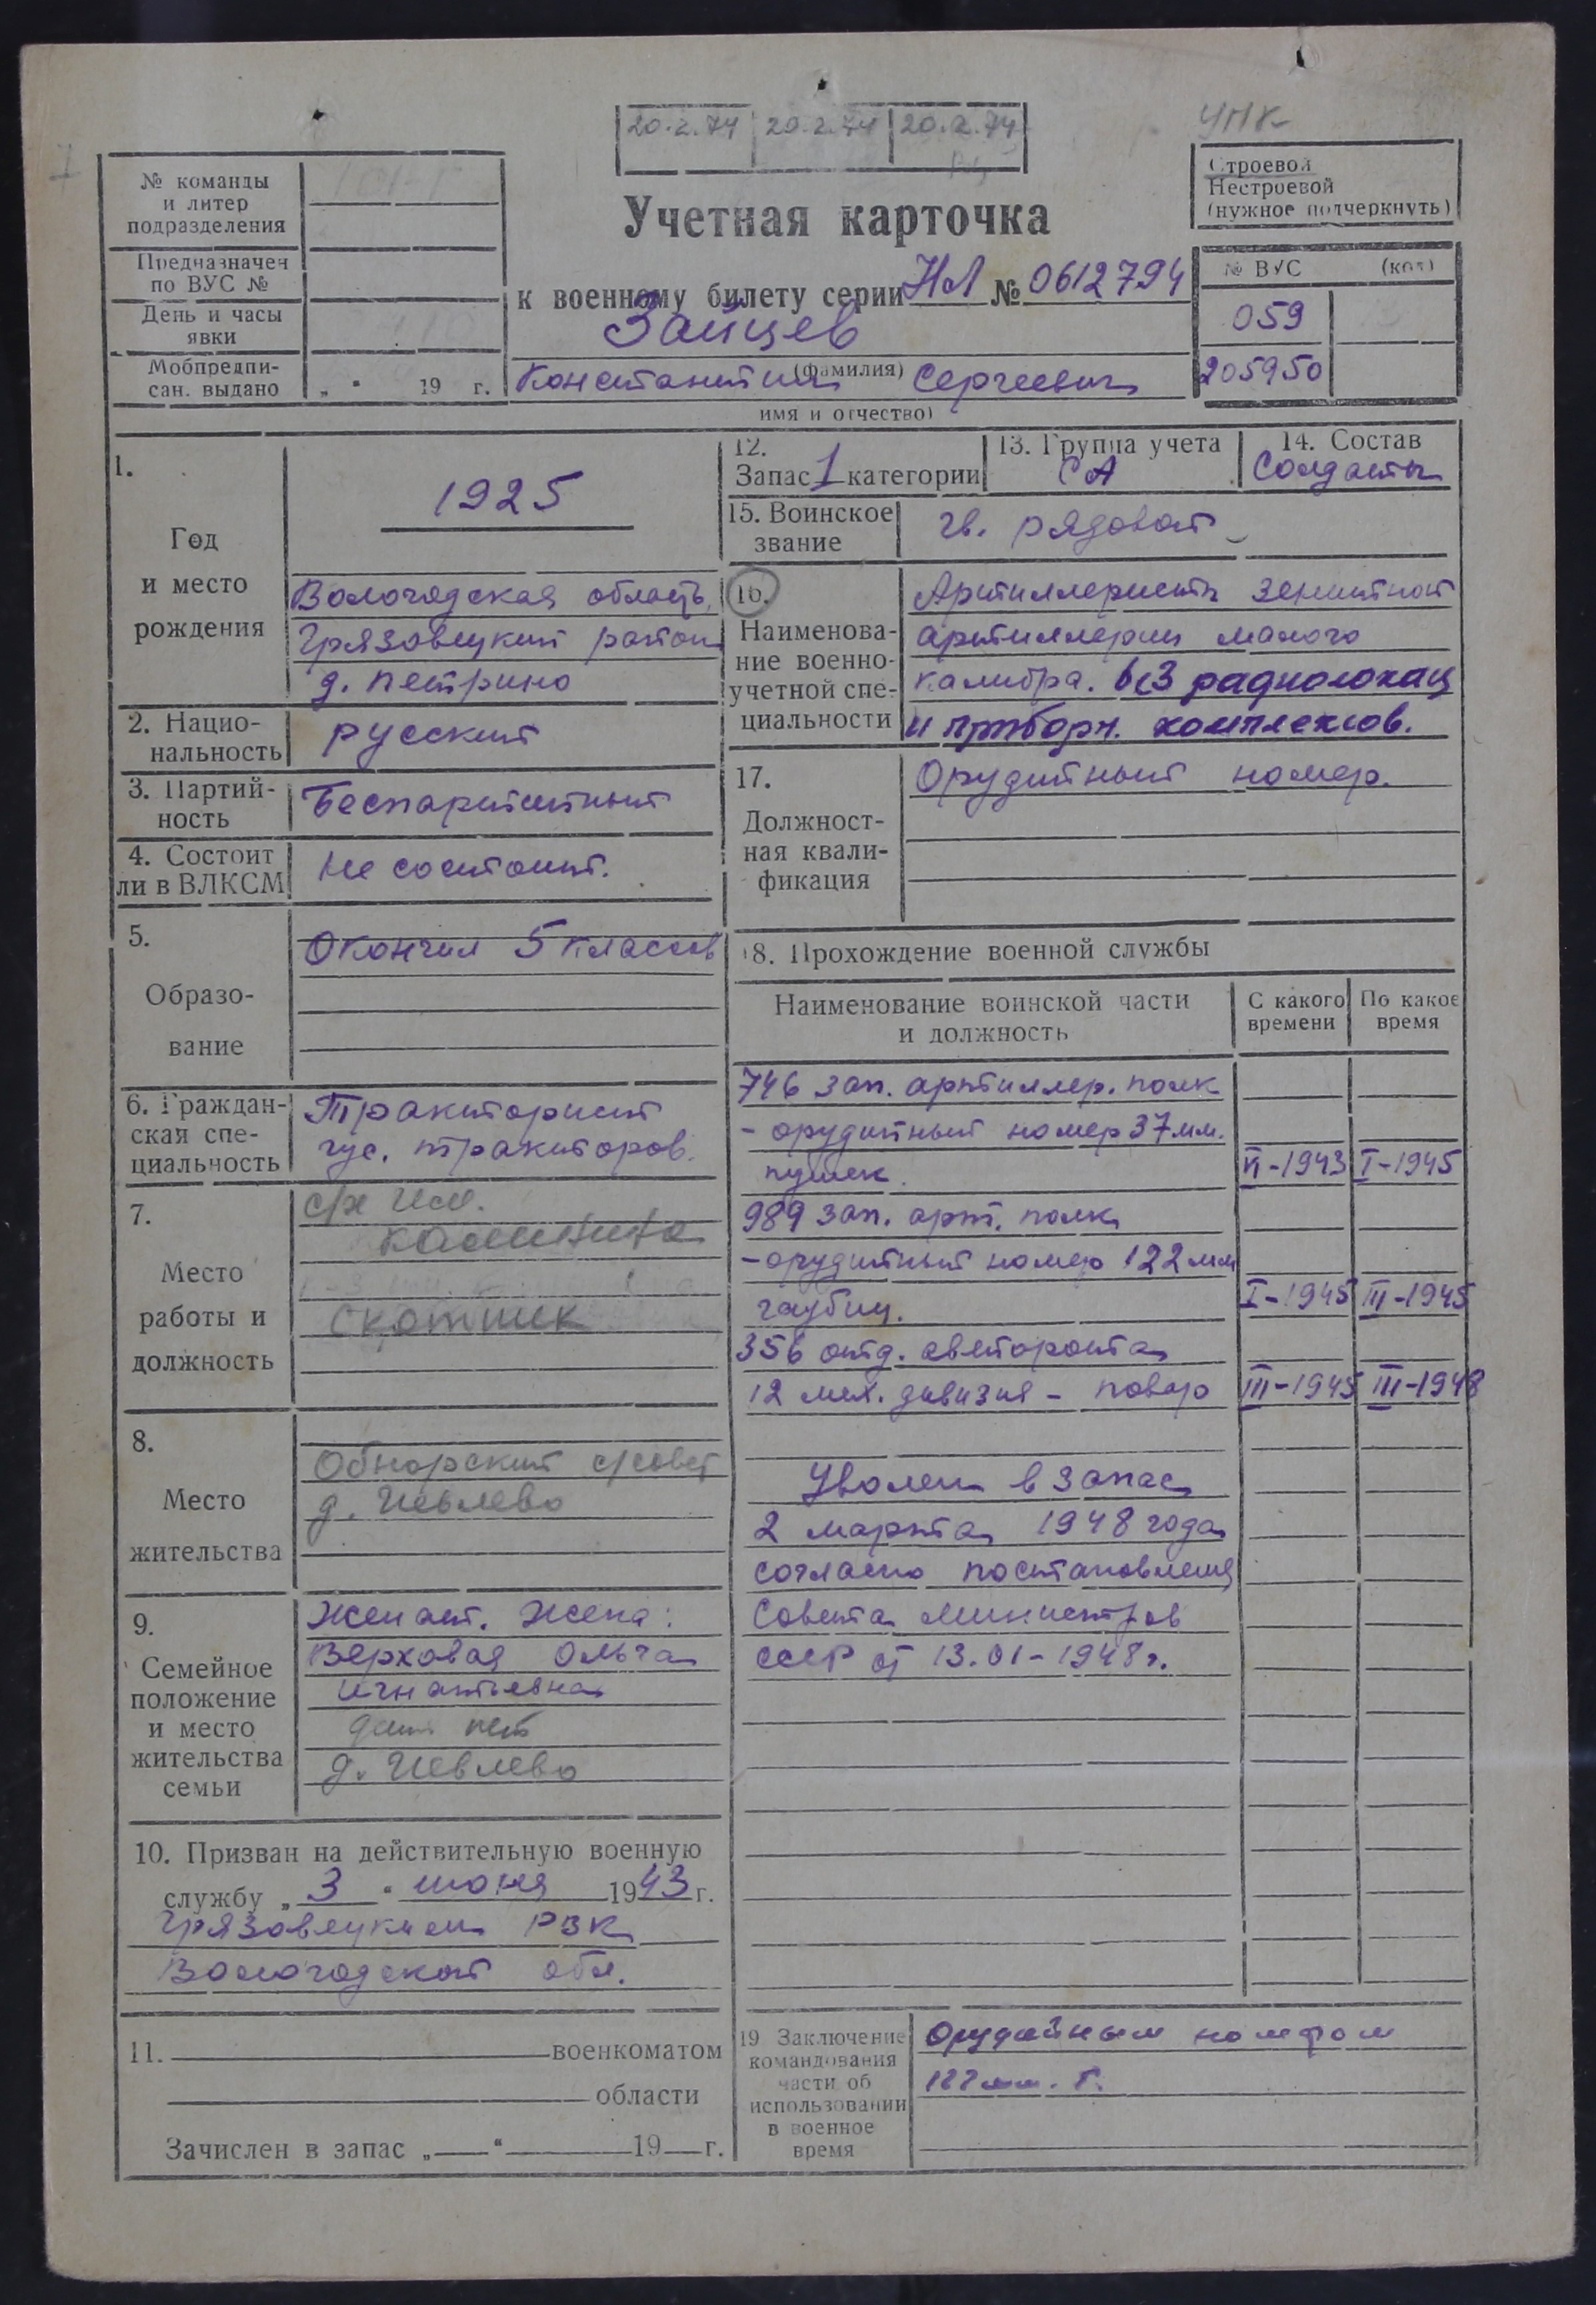 20.2.74 20.2.74 20.2.74
УПК
№ команды
и литер
подразделения
Предназначен
по ВУС №
День и часы
явки
Мобпредпи-
сан. выдано „ “ 19 г.
Строевой
Нестроевой
(нужное подчеркнуть)
Учетная карточка
к военному билету серии НЛ № 0612794
Зайцев
(фамилия)
Константин Сергеевич
имя и отчество)
№ ВУС (код)
059
205950
1.
Год
и место
рождения
1925
Вологодская область,
Грязовецкий район
д. Петрино
2. Нацио-
нальность
русский
3. Партий-
ность
Беспартийный
4. Состоит
ли в ВЛКСМ
Не состоит.
5.
Образо-
вание
Окончил 5 классов
6. Граждан-
ская спе-
циальность
Тракторист
гус. тракторов.
7.
Место
работы и
должность
с/х им.
Калинина
скотник
8.
Место
жительства
Обнорский с/совет
д. Ивлево
9.
Семейное
положение
и место
жительства
семьи
Женат. Жена:
Верховая Ольга
Игнатьевна
нет
д. Ивлево
10. Призван на действительную военную
службу „ 3 “ июня 1943 г.
Грязовецким РВК
Вологодской обл.
11. военкоматом
области
Зачислен в запас „ “ 19 г.
12.
Запас 1 категории
13. Группа учета
СА
14. Состав
Солдаты
15. Воинское
звание
гв. рядовой
16.
Наименова-
ние военно-
учетной спе-
циальности
Артиллеристы зенитной
артиллерии малого
калибра. без радиолокац
и приборн. комплексов.
17.
Должност-
ная квали-
фикация
Орудийный номер.
18. Прохождение военной службы
Наименование воинской части
и должность
С какого
времени
По какое
время
746 зап. артиллер. полк
- орудийный номер 37 мм.
пушек. VI-1943 I-1945
989 зап. арт. полк
- орудийный номер 122 мм
гаубиц. I-1945 III-1945
356 отд. авторота
12 мех. дивизия - повар III-1945 III-1948
Уволен в запас
2 марта 1948 года
согласно постановления
Совета Министров
СССР от 13.01-1948 г.
19 Заключение
командования
части об
использовании
в военное
время
Орудийным номером
122 мм. г.